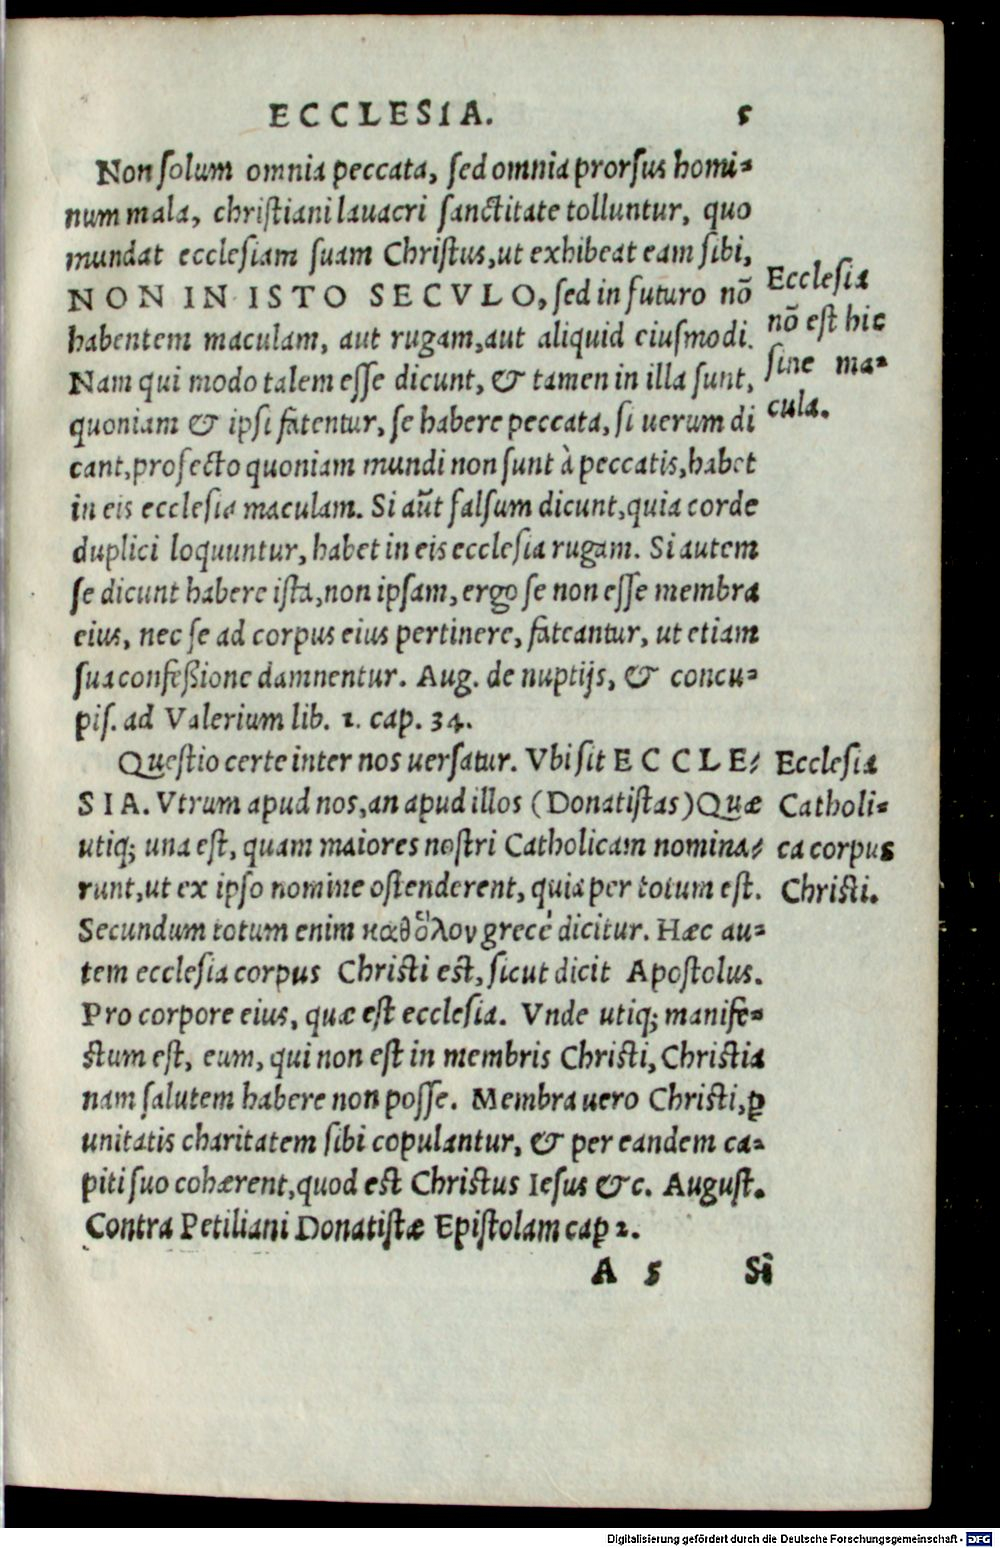 ECCLESIA. 5
Non solum omnia peccata, sed omnia prorsus homi-
num mala, christiani lauacri sanctitate tolluntur, quo
mundat ecclesiam suam Christus, ut exhibeat eam sibi,
NON IN ISTO SECVLO, sed in futuro nō
habentem maculam, aut rugam, aut aliquid eiusmodi.
Nam qui modo talem esse dicunt, & tamen in illa sunt,
quoniam & ipsi fatentur, se habere peccata, si uerum di
cant, profecto quoniam mundi non sunt à peccatis, habet
in eis ecclesia maculam. Si aūt falsum dicunt, quia corde
duplici loquuntur, habet in eis ecclesia rugam. Si autem
se dicunt habere ista, non ipsam, ergo se non esse membra
eius, nec se ad corpus eius pertinere, fateantur, ut etiam
sua confeßione damnentur. Aug. de nuptijs, & concu-
pis. ad Valerium lib. 1. cap. 34.
Ecclesia
nō est hic
sine ma-
cula.
Questio certe inter nos uersatur. Vbi sit ECCLE-
SIA. Vtrum apud nos, an apud illos (Donatistas) Quæ
utiq; una est, quam maiores nostri Catholicam nomina-
runt, ut ex ipso nomine ostenderent, quia per totum est.
Secundum totum enim καθ᾽ὅλον grecé dicitur. Hæc au-
tem ecclesia corpus Christi est, sicut dicit Apostolus.
Pro corpore eius, quæ est ecclesia. Vnde utiq; manife-
stum est, eum, qui non est in membris Christi, Christia
nam salutem habere non posse. Membra uero Christi, ꝑ
unitatis charitatem sibi copulantur, & per eandem ca-
piti suo cohærent, quod est Christus Iesus &c. August.
Contra Petiliani Donatistæ Epistolam caꝑ 2.
Ecclesia
Catholi-
ca corpus
Christi.
A 5 Si
Digitalisierung gefördert durch die Deutsche Forschungsgemeinschaft - DFG